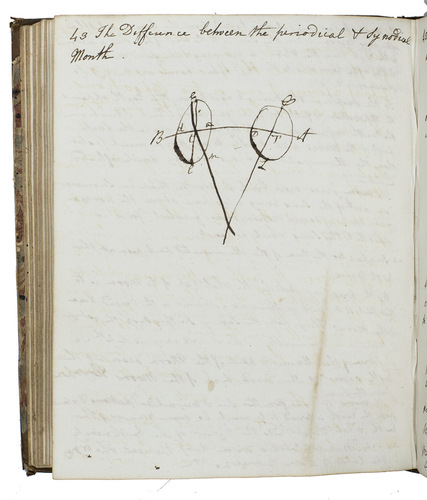 43 The Difference between the periodical & Synodical
Month.
E
D
B
A
m
L